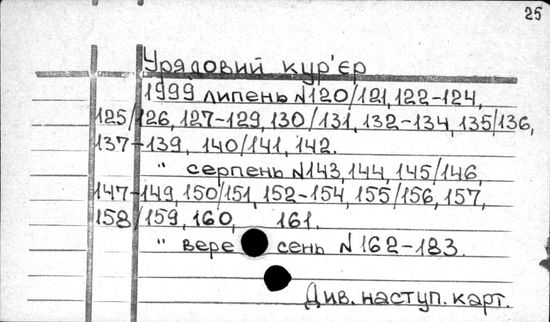 25
Урядовий кур'єр
1999 липень N120/121, 122-124,
125/126, 127-129, 130/131, 132-134, 135/136,
137-139, 140/141, 142.
" серпень N143, 144, 145/146,
147-149, 150/151, 152-154, 155/156, 157,
158/159, 160, 161.
" вересень N162-183.
Див. наступ. карт.